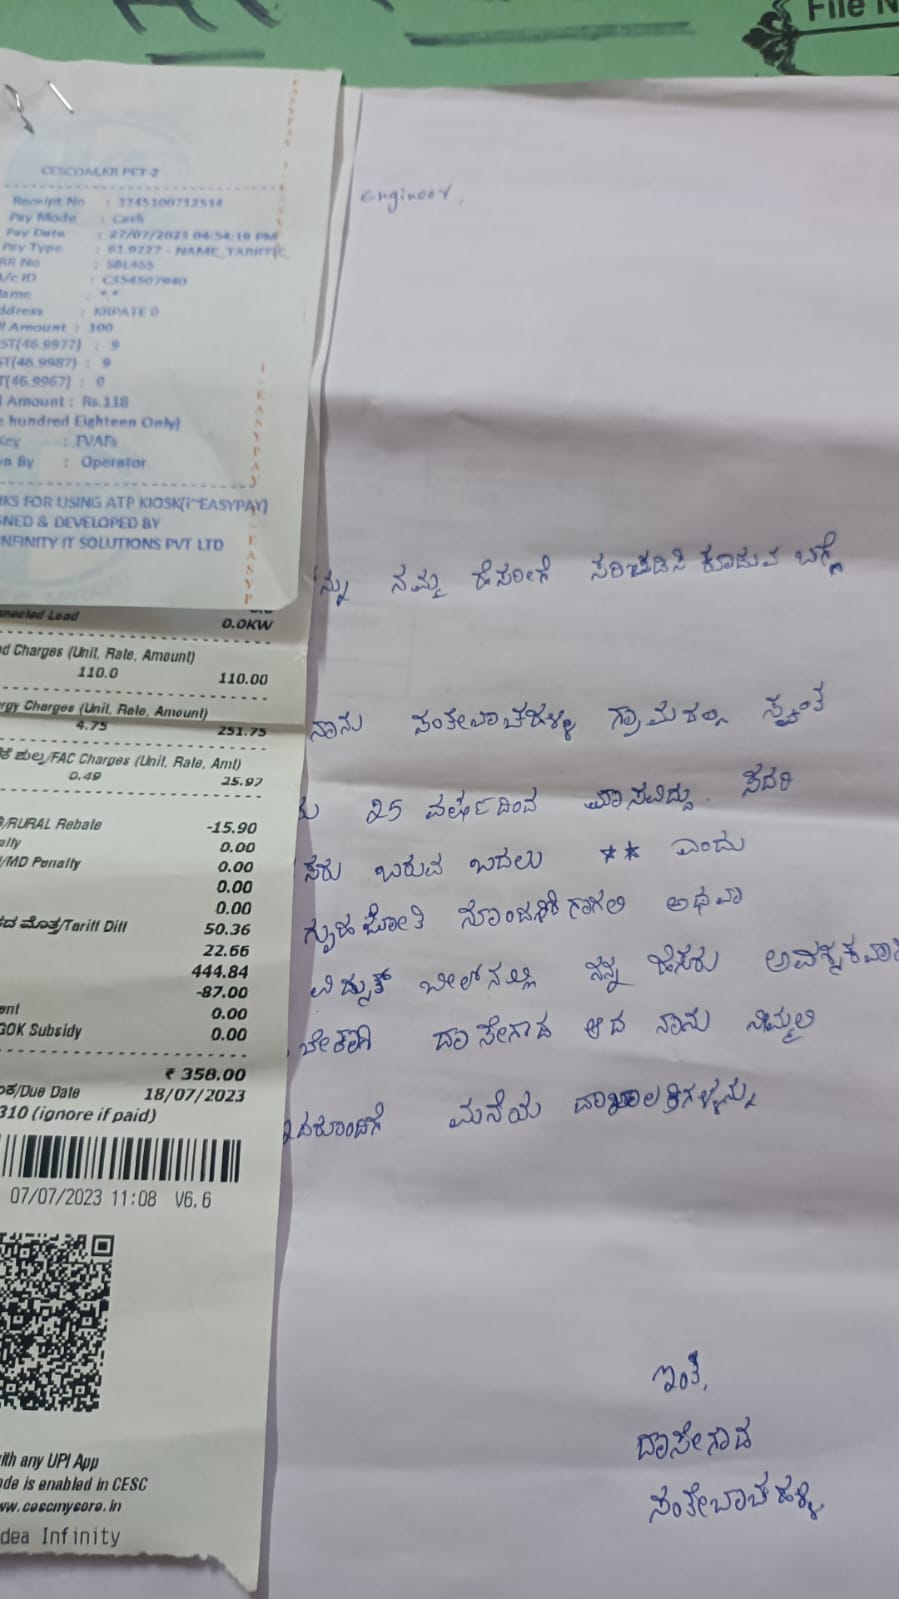 File N
CESCOM,KR PET-2
Receipt No : 3345100712514
Pay Mode : Cash
Pay Date : 27/07/2023 04:54:19 PM
Pay Type : 61.9227 - NAME_TARIFF(C
RR No : SBL455
A/c ID : C354507840
Name : *.*
ddress : KRPATE 0
ll Amount : 100
ST(46.9977) : 9
ST(46.9987) : 9
T(46.9967) : 0
l Amount : Rs.118
e hundred Eighteen Only)
Key : TVAFs
wn By : Operator
NKS FOR USING ATP KIOSK(i~EASYPAY)
GNED & DEVELOPED BY
INFINITY IT SOLUTIONS PVT LTD
I - EASYPAY
I - EASYP
Engineer.
ನ್ನು ನಮ್ಮ ಹೆಸರಿಗೆ ಸರಿಪಡಿಸಿ ಕೂಡುವ ಬಗ್ಗೆ
ನಾನು ಸಂತೇಬಾಚಹಳ್ಳಿ ಗ್ರಾಮದಲ್ಲಿ ಸ್ವಂತ
25 ವರ್ಷದಿಂದ ವಾಸವಿದ್ದು. ಸದರಿ
ಸರು ಬರುವ ಬದಲು ** ಎಂದು
ಗೃಹಜೋತಿ ನೊಂದಣಿಗಾಗಲಿ ಅಥವಾ
ವಿದ್ಯುತ್ ಬೀಲ್‌ನಲ್ಲಿ ನನ್ನ ಹೆಸರು
ದಾಸೇಗೌಡ ಆದ ನಾನು ನಿಮ್ಮಲಿ
ಮನೆಯ ದಾಖಲಾತಿಗಳನ್ನು
ಇಂತಿ,
ದಾಸೇಗೌಡ
ಸಂತೇಬಾಚಹಳ್ಳಿ
nnected Load
0.0KW
d Charges (Unit, Rate, Amount)
110.0 110.00
rgy Charges (Unit, Rate, Amount)
4.75 251.75
ಕೆ ಶುಲ್ಕ/FAC Charges (Unit, Rate, Amt)
0.49 25.97
/RURAL Rebate -15.90
alty 0.00
/MD Penalty 0.00
0.00
0.00
ದ ಮೊತ್ತ/Tariff Diff 50.36
22.66
444.84
-87.00
ent 0.00
GOK Subsidy 0.00
₹ 358.00
ಂಕ/Due Date 18/07/2023
310 (ignore if paid)
07/07/2023 11:08 V6.6
with any UPI App
ode is enabled in CESC
ww.cescmysore.in
dea Infinity